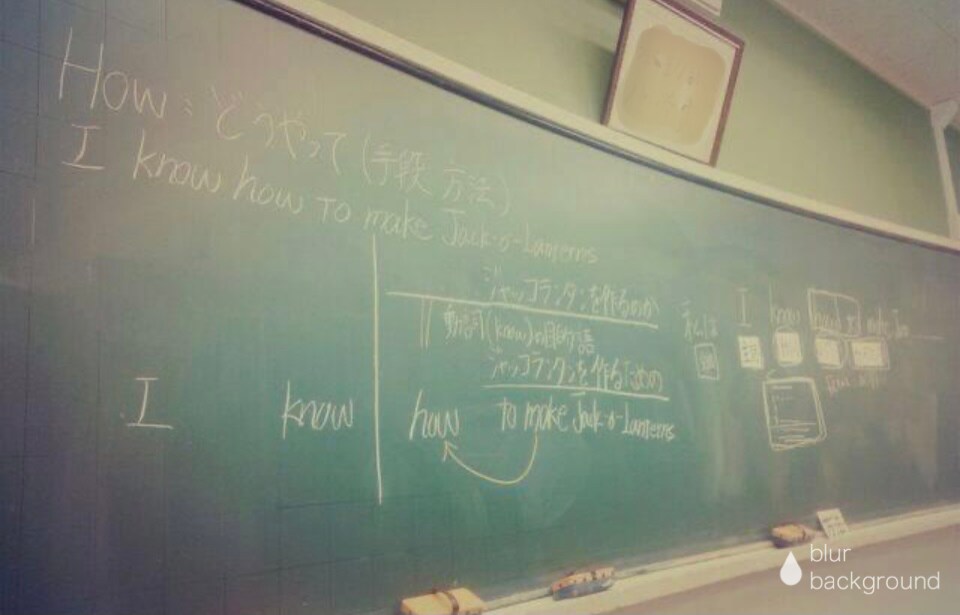 How : どうやって (手段 方法)
I know how to make Jack-o'-Lanterns
ジャッコランタンを作るのか
動詞(know)の目的語
ジャッコランタンを作るための
I know how to make Jack-o'-Lanterns
私は
I know how to make Jac
blur
background